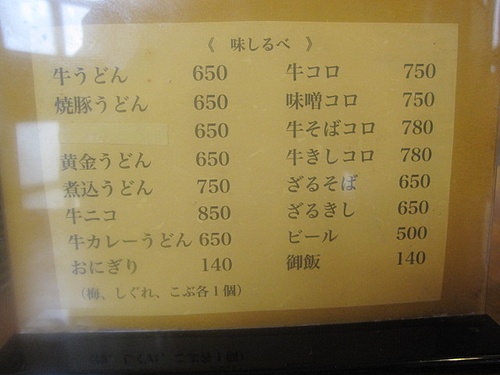 《 味しるべ 》
牛うどん 650
焼豚うどん 650
650
黄金うどん 650
煮込うどん 750
牛ニコ 850
牛カレーうどん 650
おにぎり 140
(梅、しぐれ、こぶ各1個)
牛コロ 750
味噌コロ 750
牛そばコロ 780
牛きしコロ 780
ざるそば 650
ざるきし 650
ビール 500
御飯 140